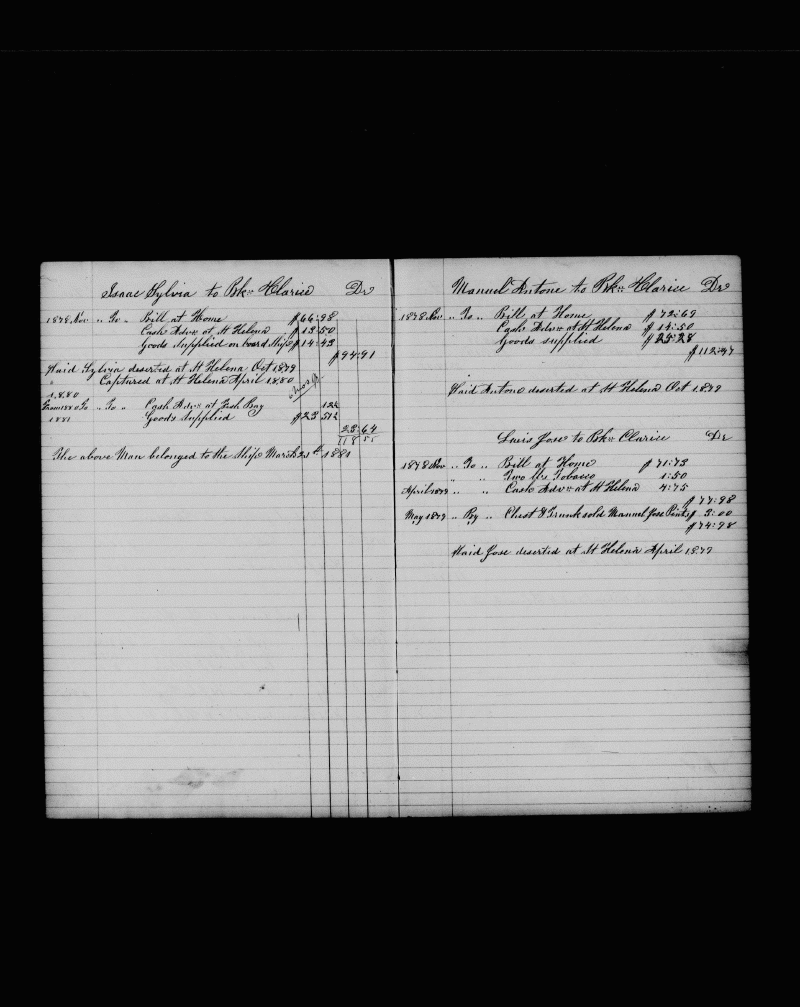 Isaac Sylvia to Bkn Clarice Dr
1878 Nov " To " Bill at Home $66:98
Cash Advn at St Helena $13:50
Goods supplied on board Ship $14:43
$94:91
Said Sylvia deserted at St Helena Oct 1879
" Captured at St Helena April 1880
1880
From 1880 To " To " Cash Advn at Fish Bay 12½
1881 Goods supplied $23 51½
23:64
118 55
The above Man belonged to the Ship March 21st 1881
Manuel Antone to Bkn Clarice Dr
1878 Nov " To " Bill at Home $72:69
Cash Advn at St Helena $14:50
Goods supplied $25:28
$112:47
Said Antone deserted at St Helena Oct 1879
Luis Jose to Bkn Clarice Dr
1878 Nov " To " Bill at Home $71:73
" " Two lbs Tobacco 1:50
April 1879 " " Cash Advn at St Helena 4:75
$77:98
May 1879 " By " Chest & Trunk sold Manuel Jose Pint $3:00
$74:98
Said Jose deserted at St Helena April 1879